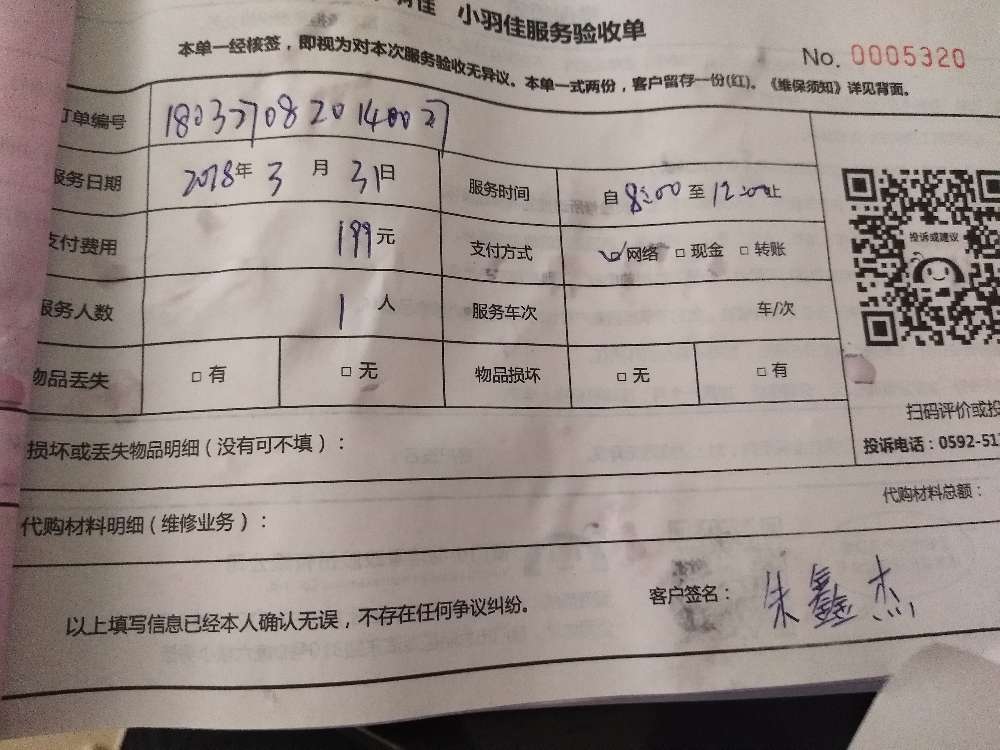 小羽佳服务验收单
本单一经核签，即视为对本次服务验收无异议。本单一式两份，客户留存一份(红)。《维保须知》详见背面。
No. 0005320
订单编号
服务日期 2018年 3 月 31日 服务时间 自 8:00 至 12:00 止
支付费用 199元 支付方式 ☑网络 □ 现金 □ 转账
服务人数 1 人 服务车次 车/次
物品丢失 □ 有 □ 无 物品损坏 □ 无 □ 有
投诉或建议
扫码评价或投
投诉电话：0592-51
损坏或丢失物品明细（没有可不填）：
代购材料明细（维修业务）： 代购材料总额：
以上填写信息已经本人确认无误，不存在任何争议纠纷。 客户签名： 朱鑫杰